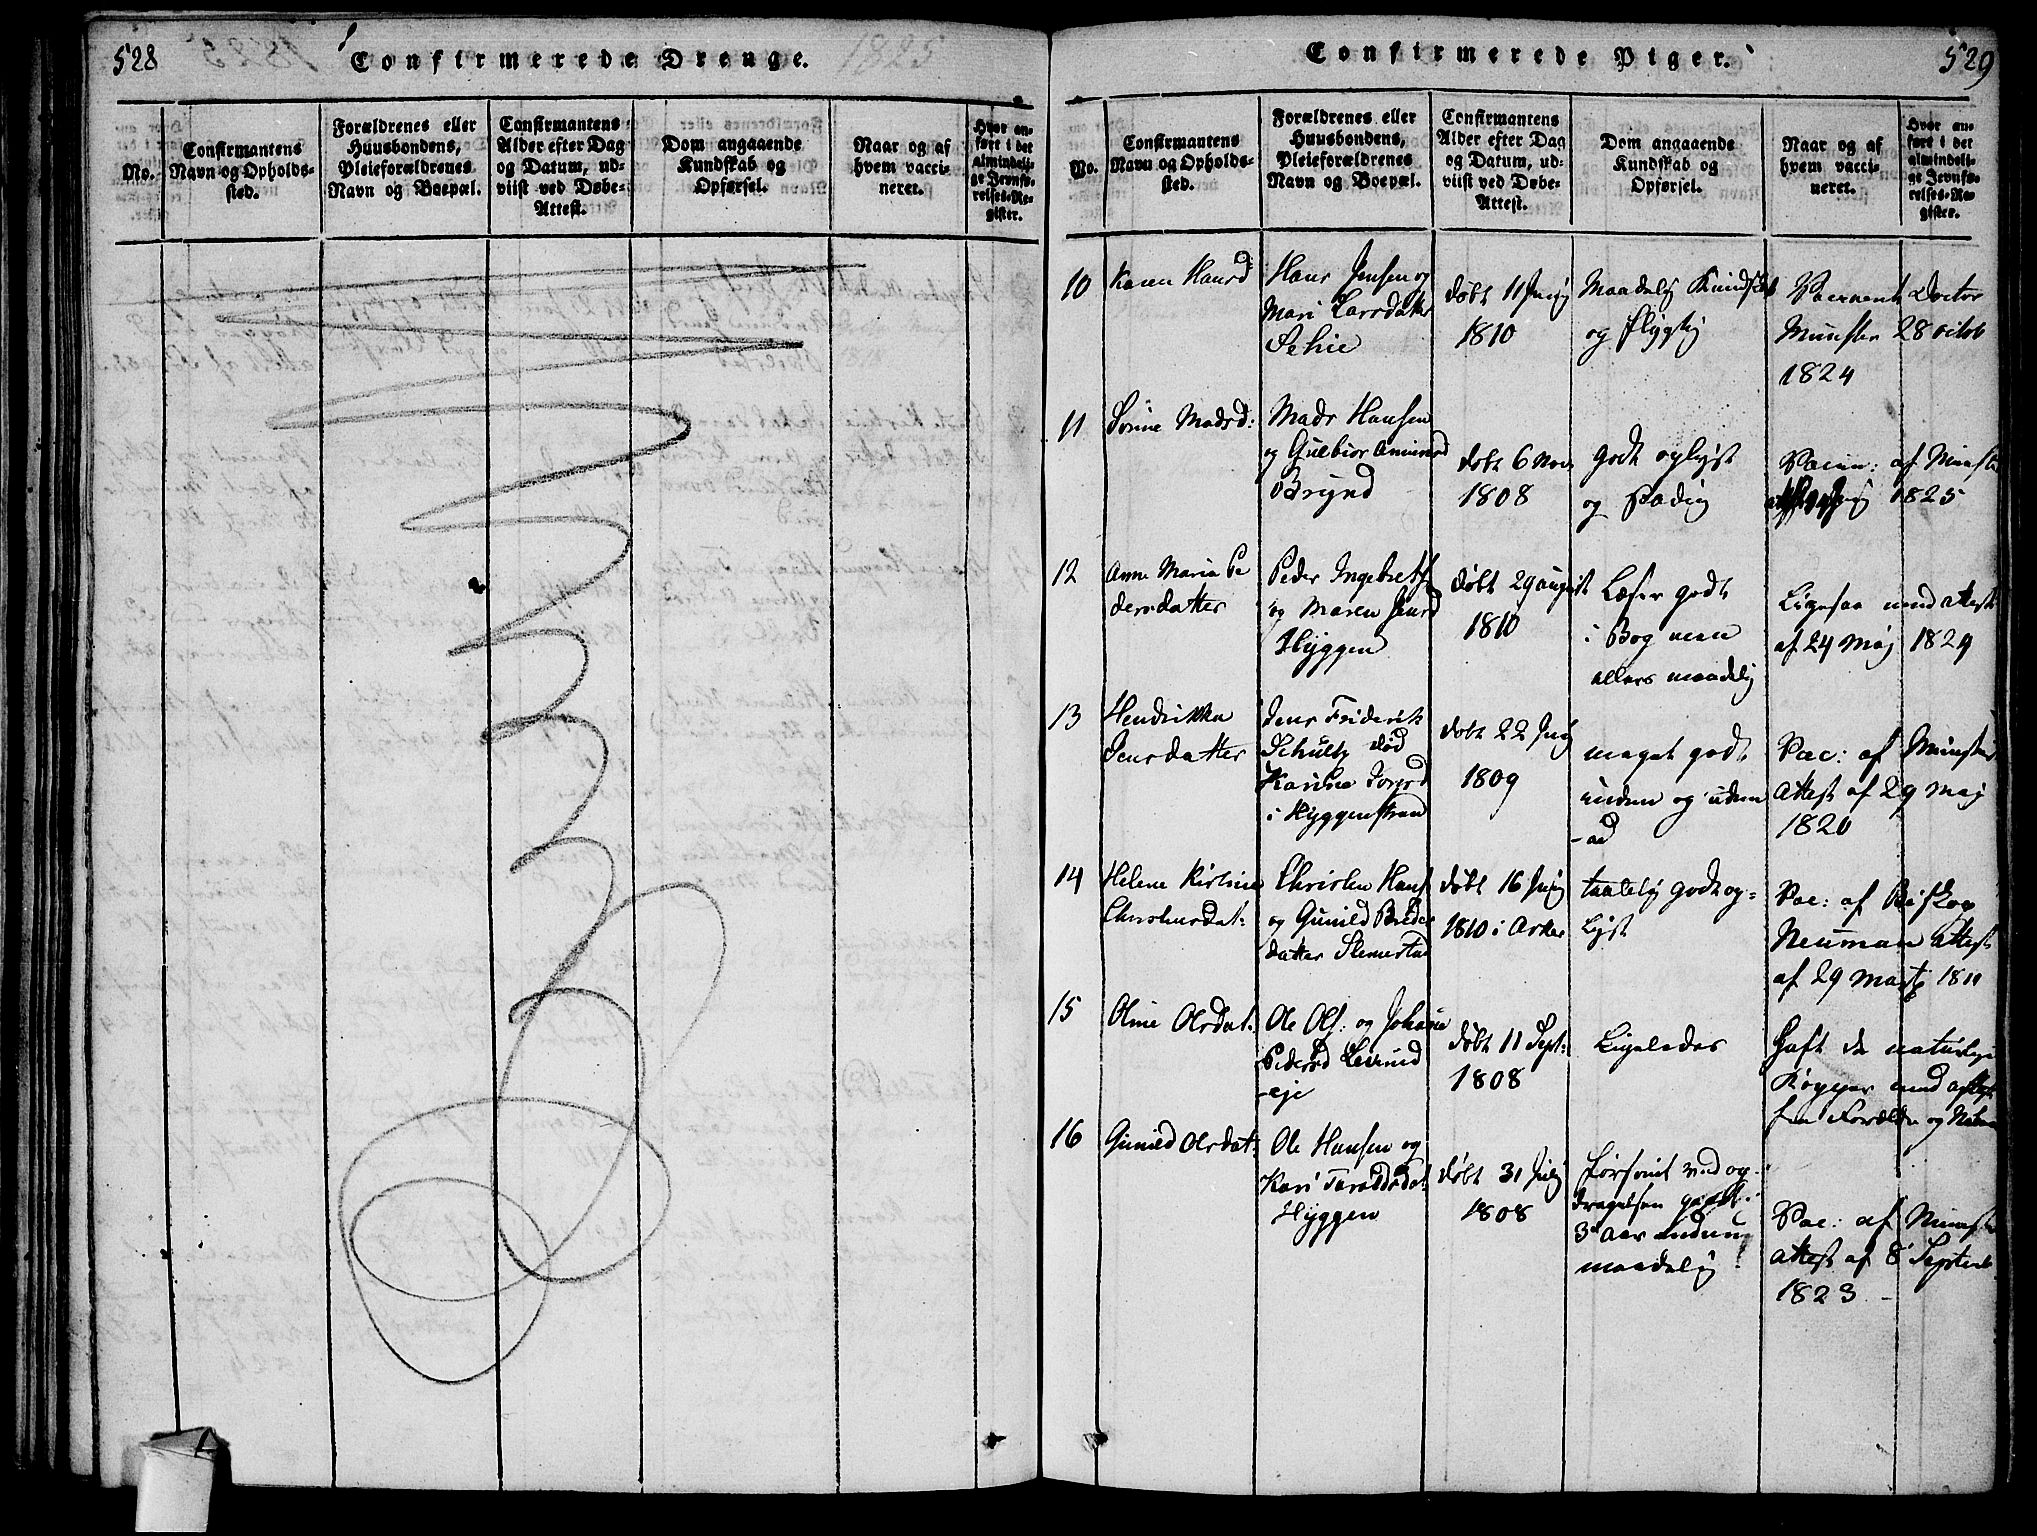 528
Confirmerede Drenge.
1825
No.
Confirmantens
Navn og Opholds-
sted.
Forældrenes eller
Huusbondens,
Pleieforældrenes
Navn og Boepæl.
Confirmantens
Alder efter Dag
og Datum, ud-
viist ved Døbe-
Attest.
Dom angaaende
Kundskab og
Opførsel.
Naar og af
hvem vacci-
neret.
Hvor an-
ført i det
almindeli-
ge Jevnfø-
relses-Re-
gister.
Confirmerede Piger.
529
No.
Confirmantens
Navn og Opholds-
sted.
Forældrenes eller
Huusbondens,
Pleieforældrenes
Navn og Boepæl.
Confirmantens
Alder efter Dag
og Datum, ud-
viist ved Døbe-
Attest.
Dom angaaende
Kundskab og
Opførsel.
Naar og af
hvem vacci-
neret.
Hvor an-
ført i det
almindeli-
ge Jevnfø-
relses-Re-
gister.
10
Karen Hansd
Hans Jensen og
Mari Larsdatter
døbt 11 Junj
1810
Maadelig Kundskab
og flygtig
Vaccinert Doctor
Munster 28 octob
1824
11
Mads Hansen
og Gulbior
døbt 6 Nov
1808
godt oplyst
og stadig
Vaccin: af Munster
1825
12
Anne Maria Pe
dersdatter
Peder Ingebretf
og Maren Jensd
Hyggen
døbt 29 august
1810
Læser godt
i Bog men
ellers maadelig
Ligesaa med attest
af 24 Maj 1824
13
Hendrikka
Jensdatter
Jens Friderik
Schultz død
i Hyggenstrand
døbt 22 Julj
1809
meget godt
inden og uden
-ad
Vac: af Munster
attest af 29 Maj
1820
14
Helene Kirstine
Christensdat:
Christen Hans
og Gunild
datter
døbt 16 Junj
1810 i Asker
taalelig godt op-
lyst
Vac: af Biskop
Neuman attest
af 29 Martz 1811
15
Oline Olsdat:
Ole Ols: og Johane
Pedersd
-eje
døbt 11 Sept:
1808
Ligeledes
Haft de naturlige
Kopper med attest
fra Forældre og Naboe
16
Gunild Olsdat:
Ole Hansen og
Kari Taraldsdat:
Hyggen
døbt 31 Julj
1808
forsømt ved op-
dragelsen gaaet
3 Aar endnu
maadelig!
Vac: af Munster
attest af 8 Septemb
1823